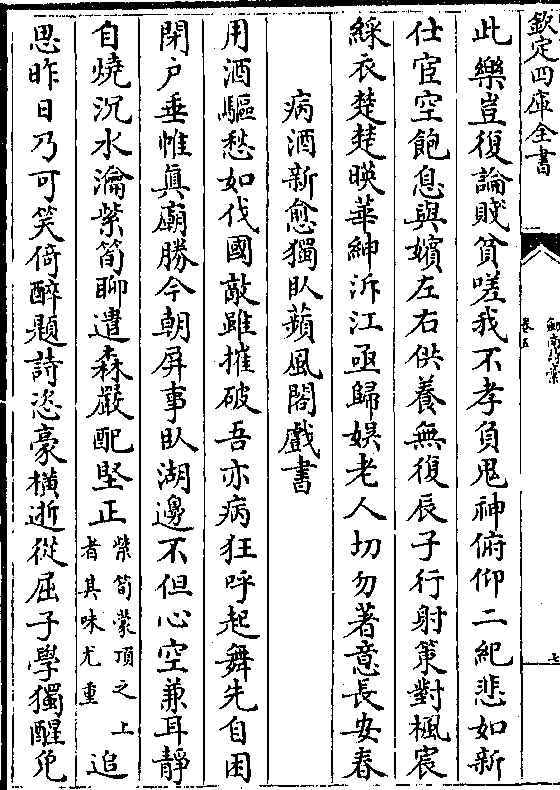 欽定四庫全書
劍南詩稾
卷五
七
此樂豈復論賤貧嗟我不孝負鬼神俯仰二紀悲如新
仕宦空飽息與嬪左右供養無復辰子行射策對楓宸
綵衣楚楚暎華紳泝江亟歸娛老人切勿著意長安春
病酒新愈獨臥蘋風閣戲書
用酒驅愁如伐國敵雖摧破吾亦病狂呼起舞先自困
閉戶垂帷真廟勝今朝屏事臥湖邊不但心空兼耳靜
自燒沉水瀹紫筍聊遣森嚴配堅正紫筍蒙頂之上者其味尤重追
思昨日乃可笑倚醉題詩恣豪橫逝從屈子學獨醒免